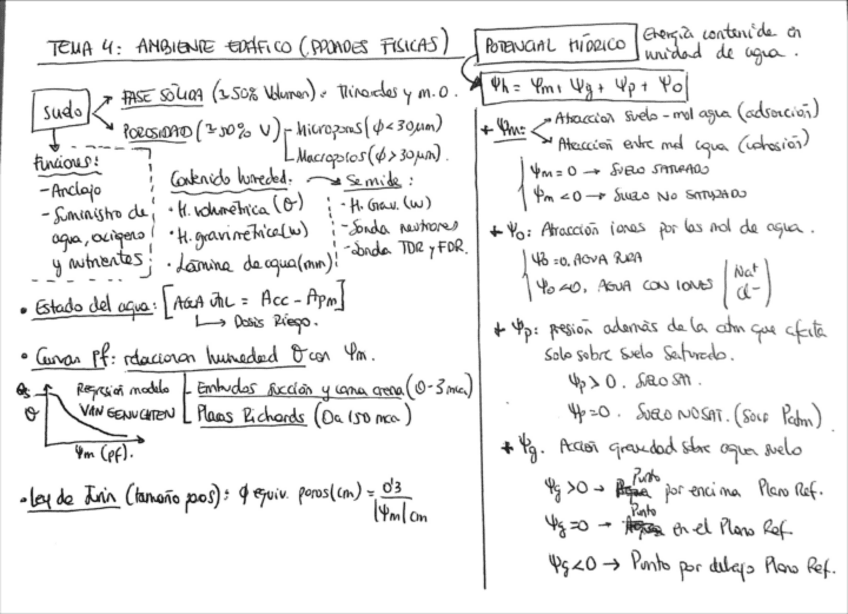 TEMA 4: AMBIENTE EDÁFICO (PROPDADES FÍSICAS)
suelo
FASE SÓLIDA (≃50% Volumen): Minerales y m.O.
POROSIDAD (≃50% V)
Microporos (ϕ<30μm)
Macroporos (ϕ>30μm).
Funciones:
- Anclaje
- Suministro de
agua, oxígeno
y nutrientes
Contenido humedad:
· H. volumétrica (θ)
· H. gravimétrica (w)
· Lámina de agua (mm)
Se mide:
- H. Grav. (w)
- Sonda neutrones
- Sonda TDR y FDR.
• Estado del agua: [AGUA ÚTIL = Acc - Apm]
Dosis Riego.
• Curvas pF: relacionan humedad θ con Ψm.
θs
θ
Regresión modelo
VAN GENUCHTEN
Ψm (pF).
Embudos succión y cama arena (0-3 mca)
Placas Richards (0 a 150 mca)
• Ley de Jurin (tamaño poros): ϕ equiv. poros (cm) = 0'3
|Ψm| cm
POTENCIAL HÍDRICO
Energía contenida en
unidad de agua.
Ψh = Ψm + Ψg + Ψp + Ψo
+ Ψm:
Atracción suelo - mol agua (adsorción)
Atracción entre mol agua (cohesión)
Ψm = 0 → SUELO SATURADO
Ψm < 0 → SUELO NO SATURADO
+ Ψo: Atracción iones por las mol de agua.
Ψo = 0. AGUA PURA
Ψo < 0. AGUA CON IONES
Na+
Cl-
+ Ψp: presión además de la atm que afecta
solo sobre suelo Saturado.
Ψp > 0. SUELO SAT.
Ψp = 0. SUELO NO SAT. (SOLO Patm)
+ Ψg. Acción gravedad sobre agua suelo
Ψg > 0 → Punto por encima Plano Ref.
Ψg = 0 → Punto en el Plano Ref.
Ψg < 0 → Punto por debajo Plano Ref.